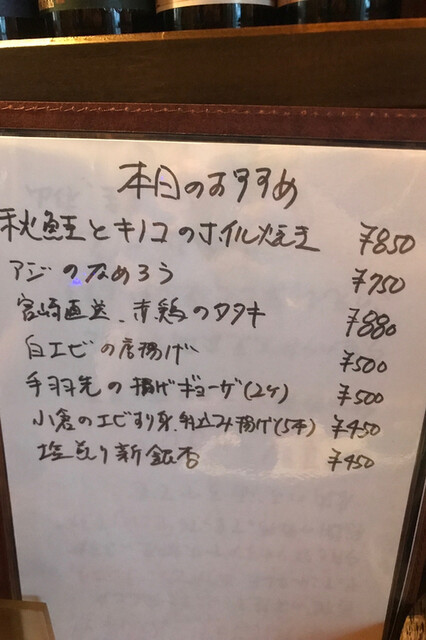 本日のおすすめ
秋鮭とキノコのホイル焼き ¥850
アジのなめろう ¥750
宮崎直送、赤鶏のタタキ ¥880
白エビの唐揚げ ¥500
手羽先の揚げギョーザ(2ヶ) ¥500
小倉のエビすり身、射込み揚げ(5本) ¥450
塩煎り新銀杏 ¥450